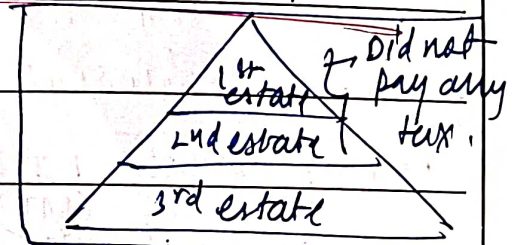 1st
estate
2nd estate
3rd estate
Did not
pay any
tax.